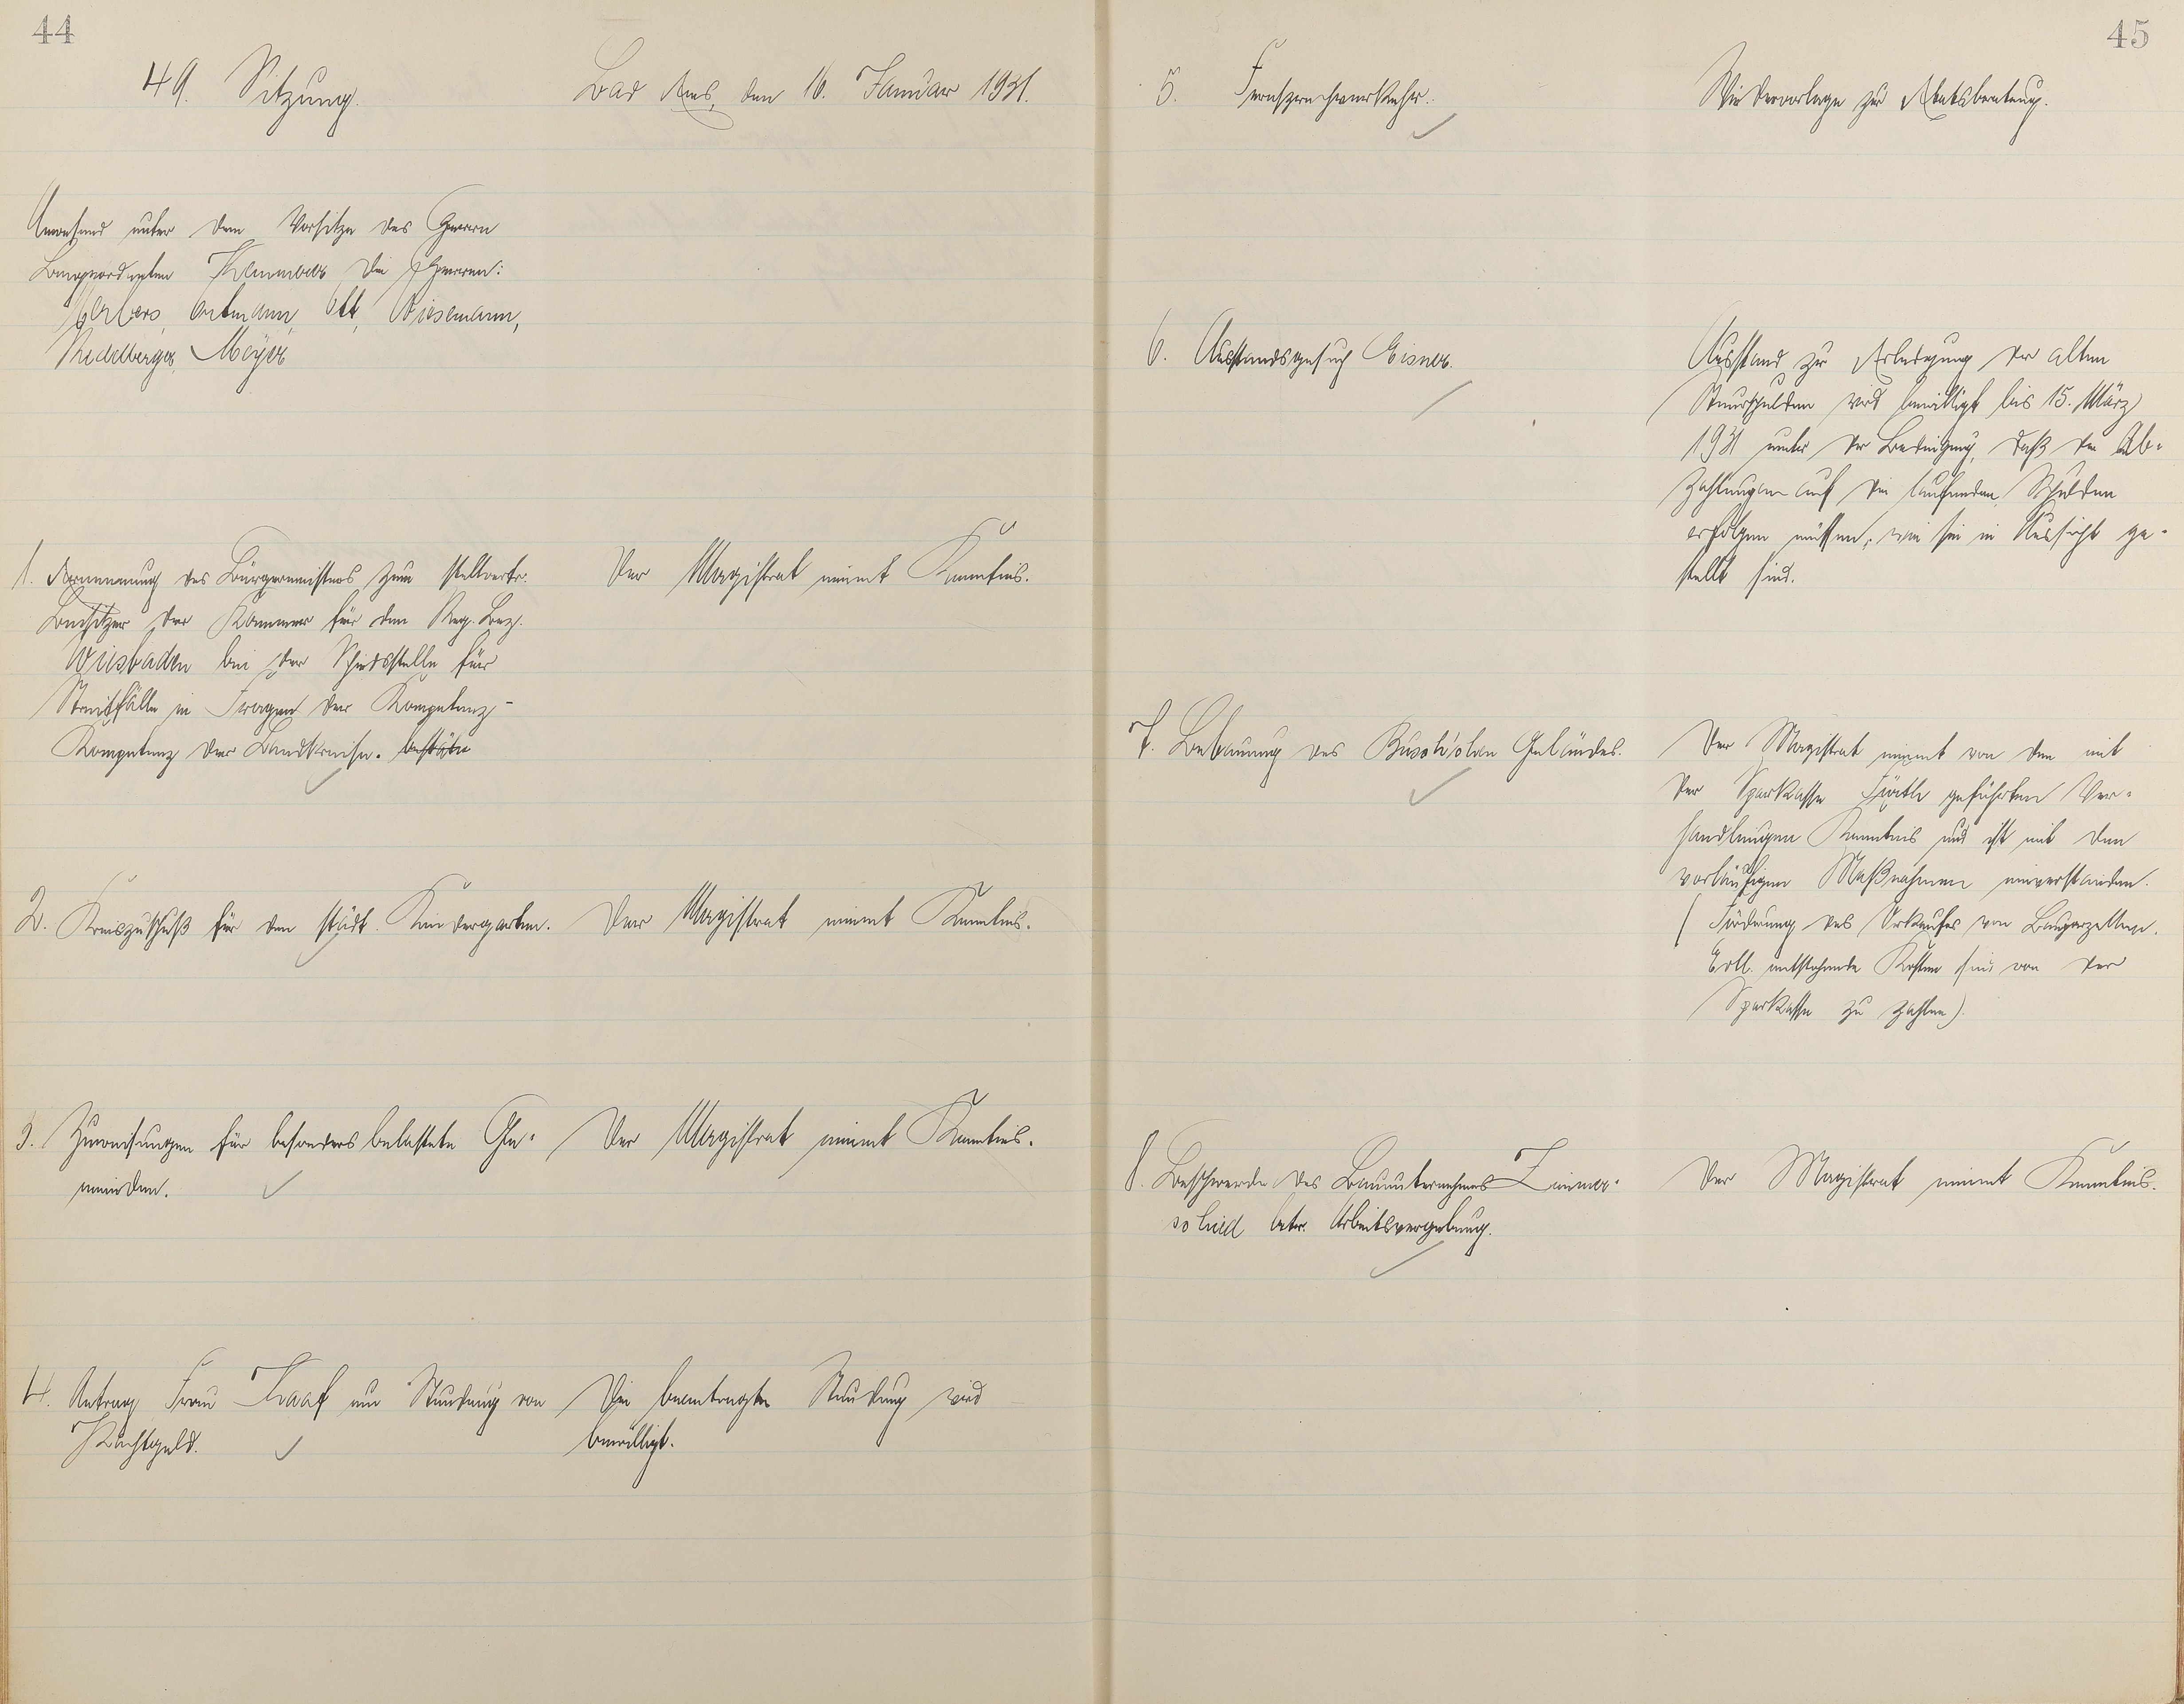 44
49. Sitzung.
Bad Ems, den 16. Januar 1931.
Anwesend unter dem Vorsitze des Herrn
Beigeordneten die Herren:
Ortmann, Ott, Wiesemann,
Heidelberger, Meyer
1. Ernennung des Bürgermeisters zum stellvertr.
Beisitzer der Kammer für den Reg. Bez.
Wiesbaden bei der Schiedsstelle für
Streitfälle in Fragen der Kompetenz-
Kompetenz der Landkreise.
Der Magistrat nimmt Kenntnis.
2. Kreiszuschuß für den städt. Kindergarten.
Der Magistrat nimmt Kenntnis.
3. Zuweisungen für besonders belastete Ge-
meinden.
Der Magistrat nimmt Kenntnis.
4. Antrag Frau um Stundung von
Pachtgeld.
Die beantragte Stundung wird
bewilligt.
45
5. Fernsprechverkehr.
Wiedervorlage zur Etatsberatung.
6. Ausstandsgesuch Eisner.
Ausstand zur Erledigung der alten
Steuerschulden wird bewilligt bis 15. März
1931 unter der Bedingung, daß die Ab-
zahlungen auf die laufenden Schulden
erfolgen müssen, wie sie in Aussicht ge-
stellt sind.
7. Bebauung des Geländes.
Der Magistrat nimmt von den mit
der Sparkasse geführten Ver-
handlungen Kenntnis und ist mit den
vorläufigen Maßnahmen einverstanden.
(Förderung des Verkaufes von Bauparzellen.
Evtl. entstehende Kosten sind von der
Sparkasse zu zahlen).
8. Beschwerde des Bauunternehmers Zimmer-
schied betr. Arbeitsvergebung.
Der Magistrat nimmt Kenntnis.